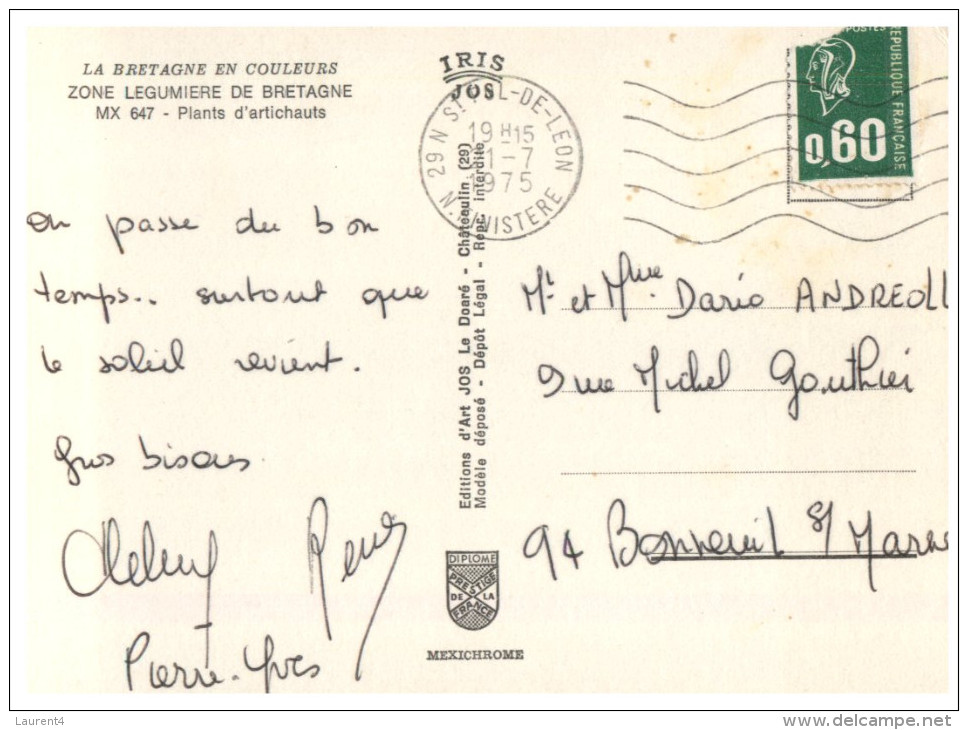 LA BRETAGNE EN COULEURS
ZONE LEGUMIERE DE BRETAGNE
MX 647 - Plants d'artichauts
IRIS
JOS
29 N ST POL-DE-LEON
19 H 15
-7
1975
N. FINISTERE
POSTES
REPUBLIQUE FRANÇAISE
0,60
on passe du bon
temps.. surtout que
le soleil revient.
gros bisous
Pierre-Yves
Editions d'Art JOS Le Doaré - Châteaulin (29)
Modèle déposé - Dépôt Légal - Repr. interdite
Mr et Mme Dario ANDREOLL
9 rue Michel Gouthier
94 Bonneuil s/ Marne
DIPLOME
PRESTIGE
DE LA
FRANCE
MEXICHROME
Laurent4
www.delcampe.net